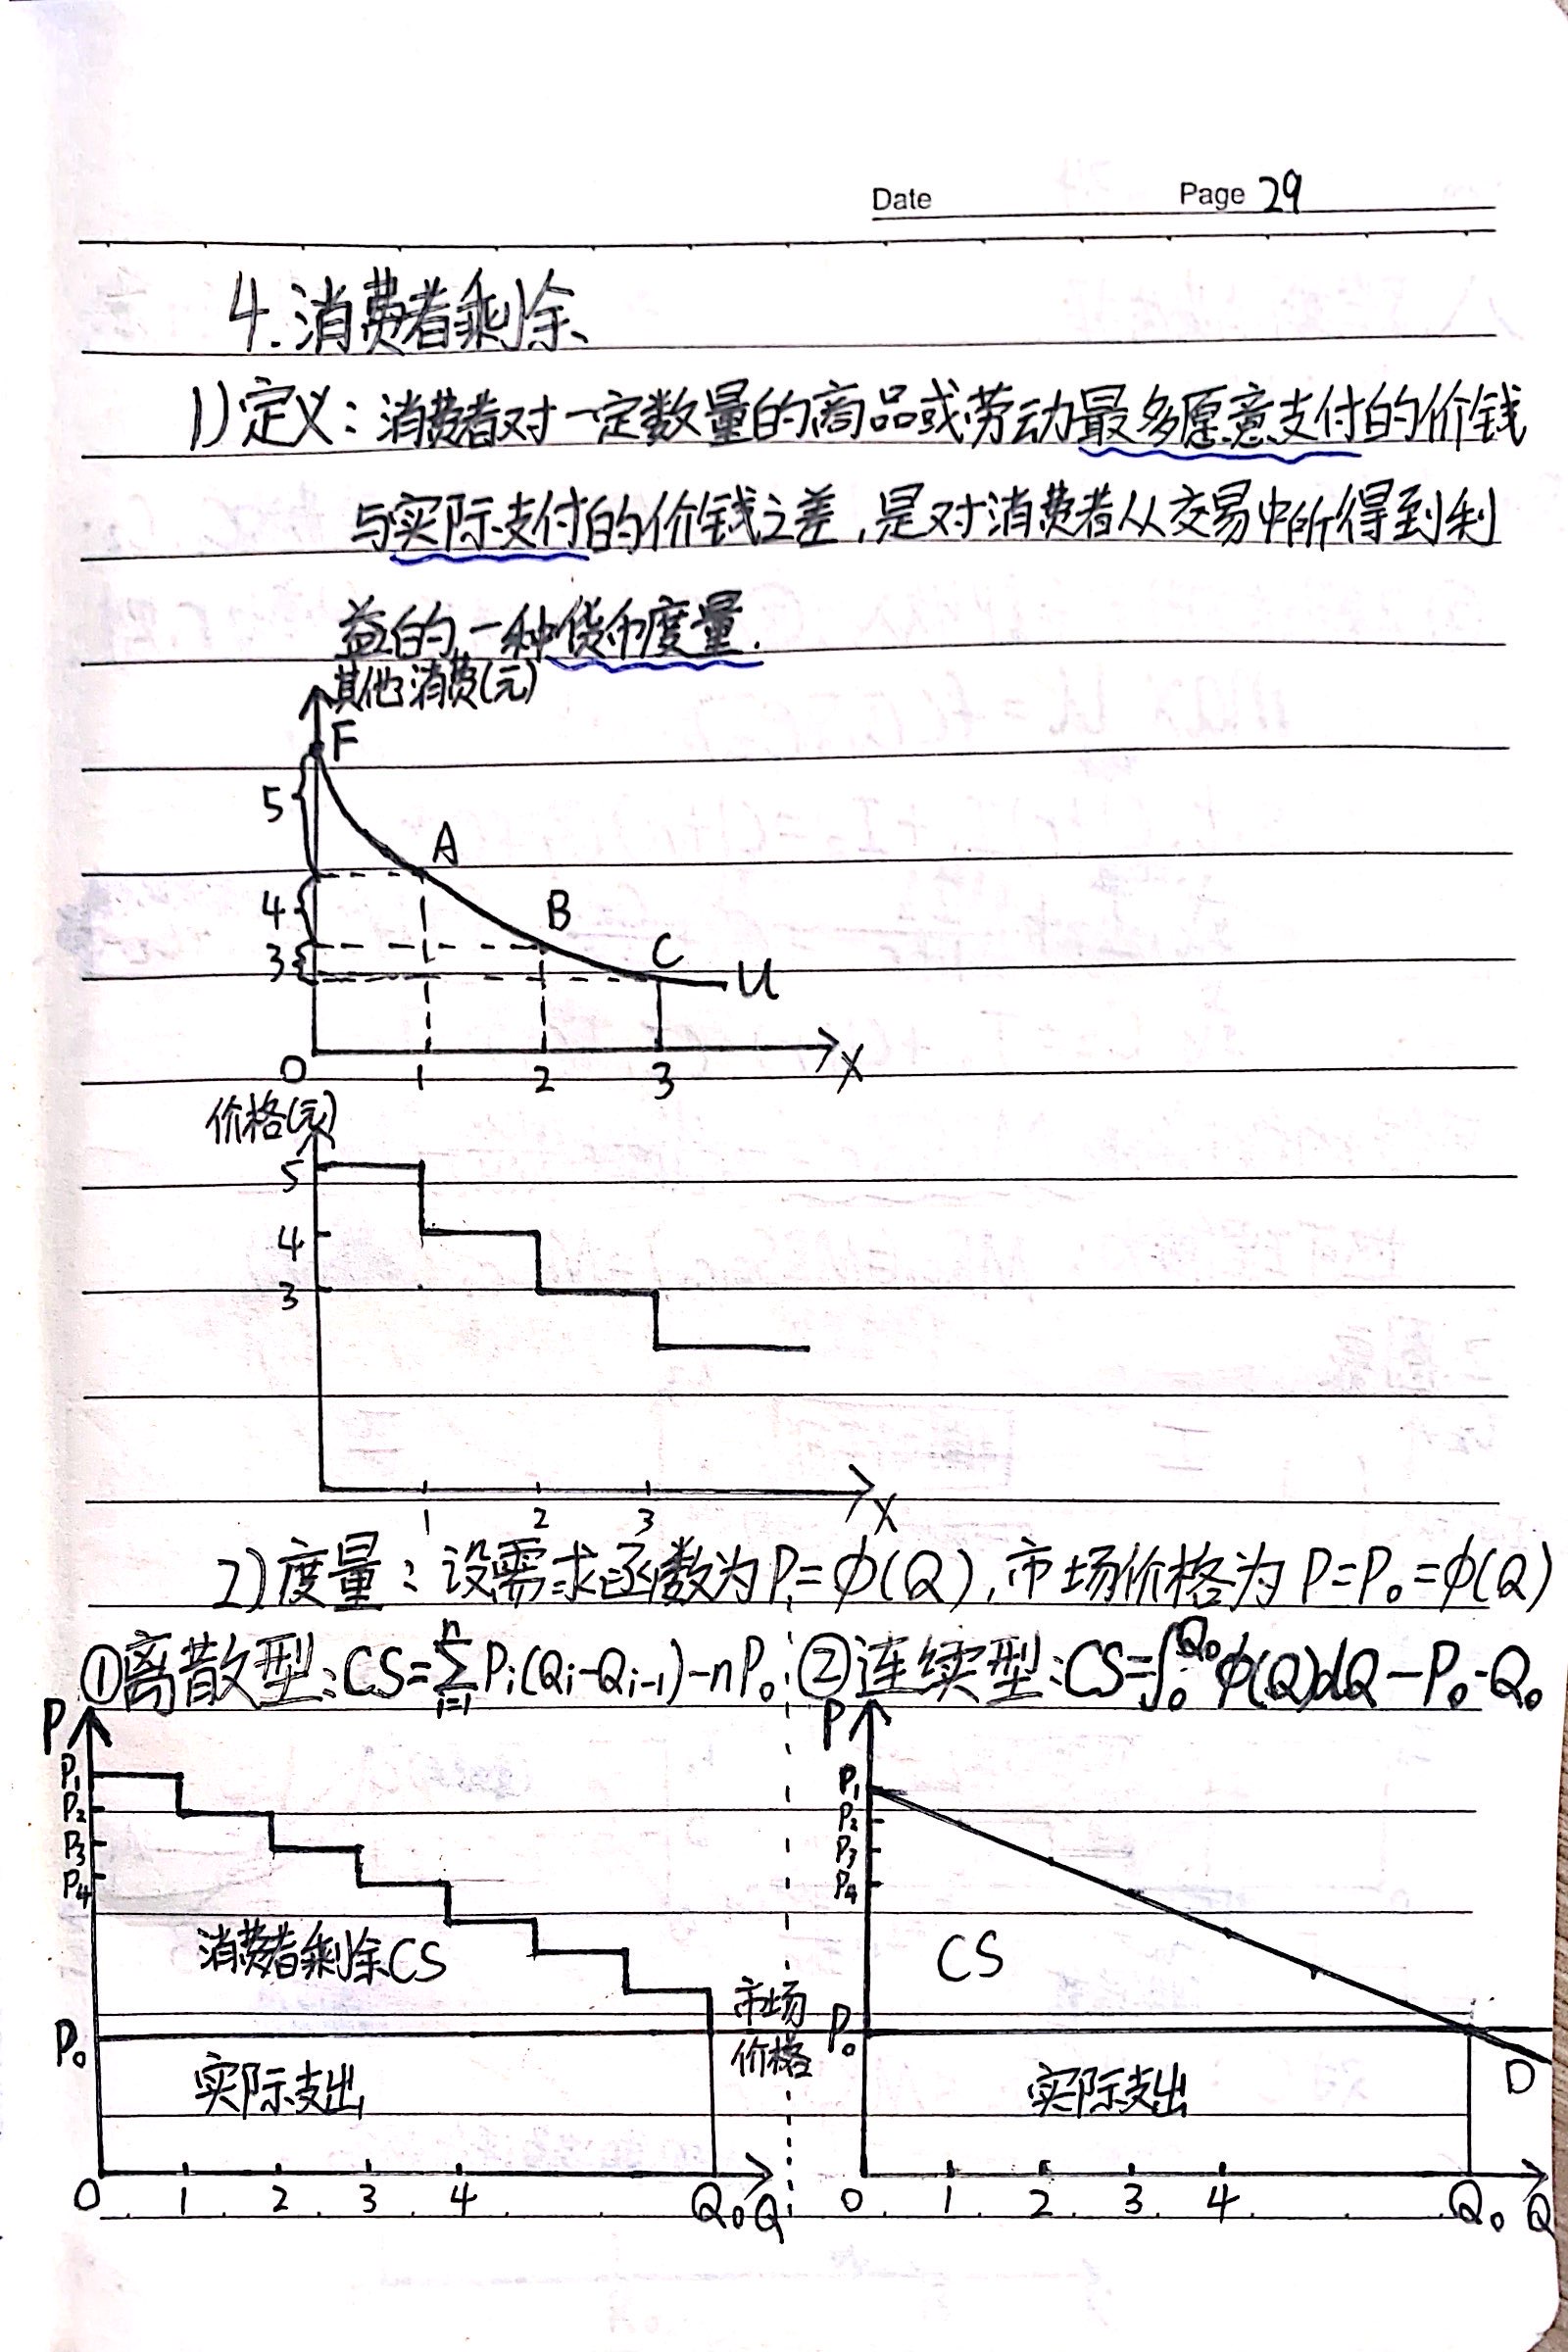 Date Page 29
4.消费者剩余
1)定义:消费者对一定数量的商品或劳动最多愿意支付的价钱
与实际支付的价钱之差,是对消费者从交易中所得到利
益的一种货币度量.
其他消费(元)
F
5
A
4
B
3
C
U
O 1 2 3 X
价格(元)
5
4
3
1 2 3 X
2)度量:设需求函数为P=φ(Q),市场价格为P=P₀=φ(Q)
①离散型:CS=∑ⁿᵢ₌₁Pᵢ(Qᵢ-Qᵢ₋₁)-nP₀ ②连续型:CS=∫₀^Q₀φ(Q)dQ-P₀·Q₀
P P
P₁ P₁
P₂ P₂
P₃ P₃
P₄ P₄
消费者剩余CS CS
市场
P₀ 价格 P₀
实际支出 实际支出 D
0 1 2 3 4 Q₀ Q 0 1 2 3 4 Q₀ Q